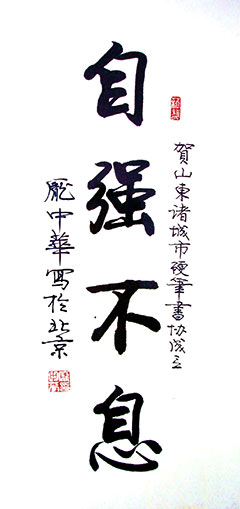 賀山東诸城市硬筆書协成立
自强不息
龐中華写於北京